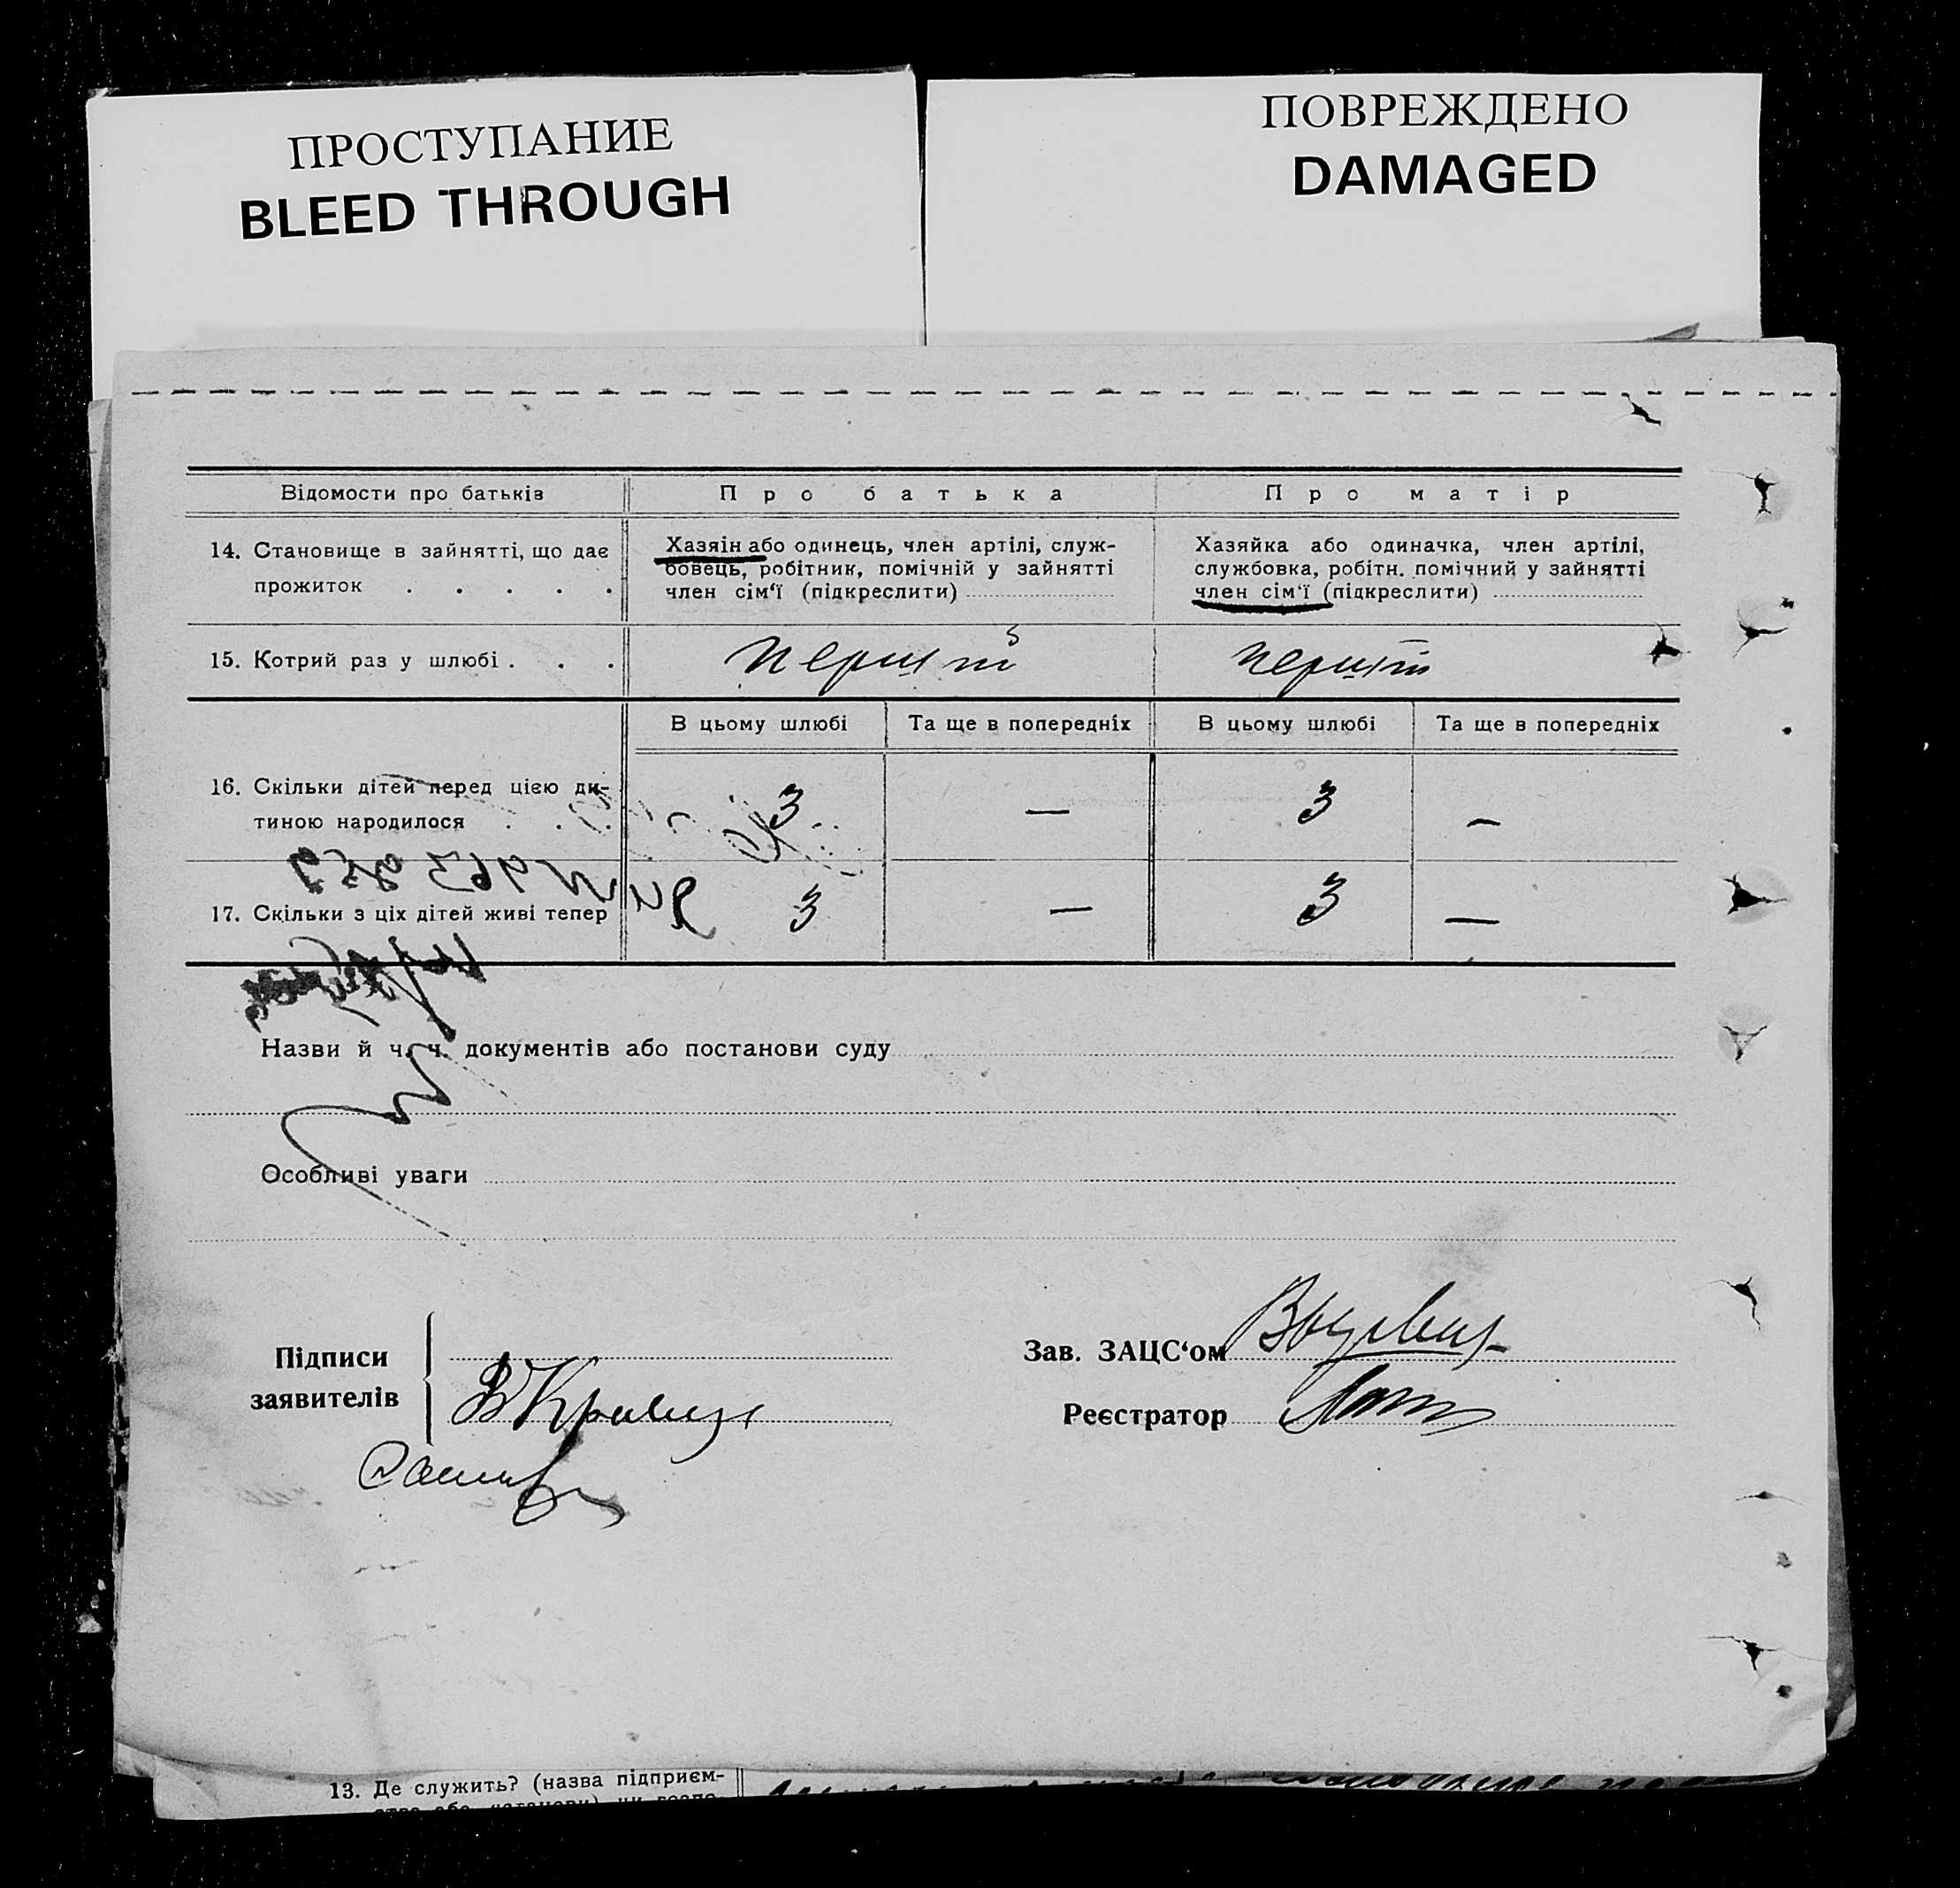 ПРОСТУПАНИЕ
BLEED THROUGH
ПОВРЕЖДЕНО
DAMAGED
Відомости про батьків
Про батька
Про матір
14. Становище в зайнятті, що дає
прожиток . . . . .
Хазяін або одинець, член артілі, служ-
бовець, робітник, помічній у зайнятті
член сім‘ї (підкреслити)
Хазяйка або одиначка, член артілі,
службовка, робітн. помічний у зайнятті
член сім‘ї (підкреслити)
15. Котрий раз у шлюбі . . .
перший
перший
В цьому шлюбі
Та ще в попередніх
В цьому шлюбі
Та ще в попередніх
16. Скільки дітей перед цією ди-
тиною народилося . . .
3
—
3
—
17. Скільки з ціх дітей живі тепер
3
—
3
—
Назви й ч. ч. документів або постанови суду
Особливі уваги
Підписи
заявителів
Зав. ЗАЦС‘ом
Реєстратор
13. Де служить? (назва підприєм-